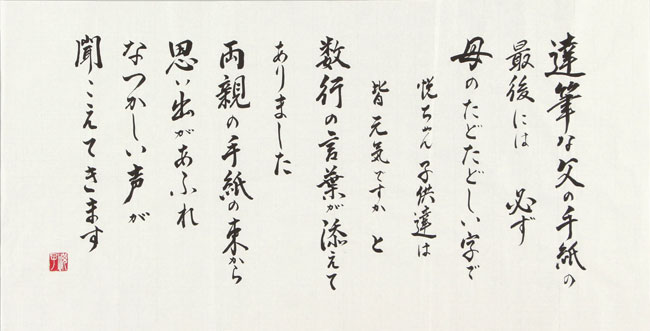 達筆な父の手紙の
最後には 必ず
母のたどたどしい字で
悦ちゃん 子供達は
皆元気ですか と
数行の言葉が添えて
ありました
両親の手紙の束から
思い出があふれ
なつかしい声が
聞こえてきます